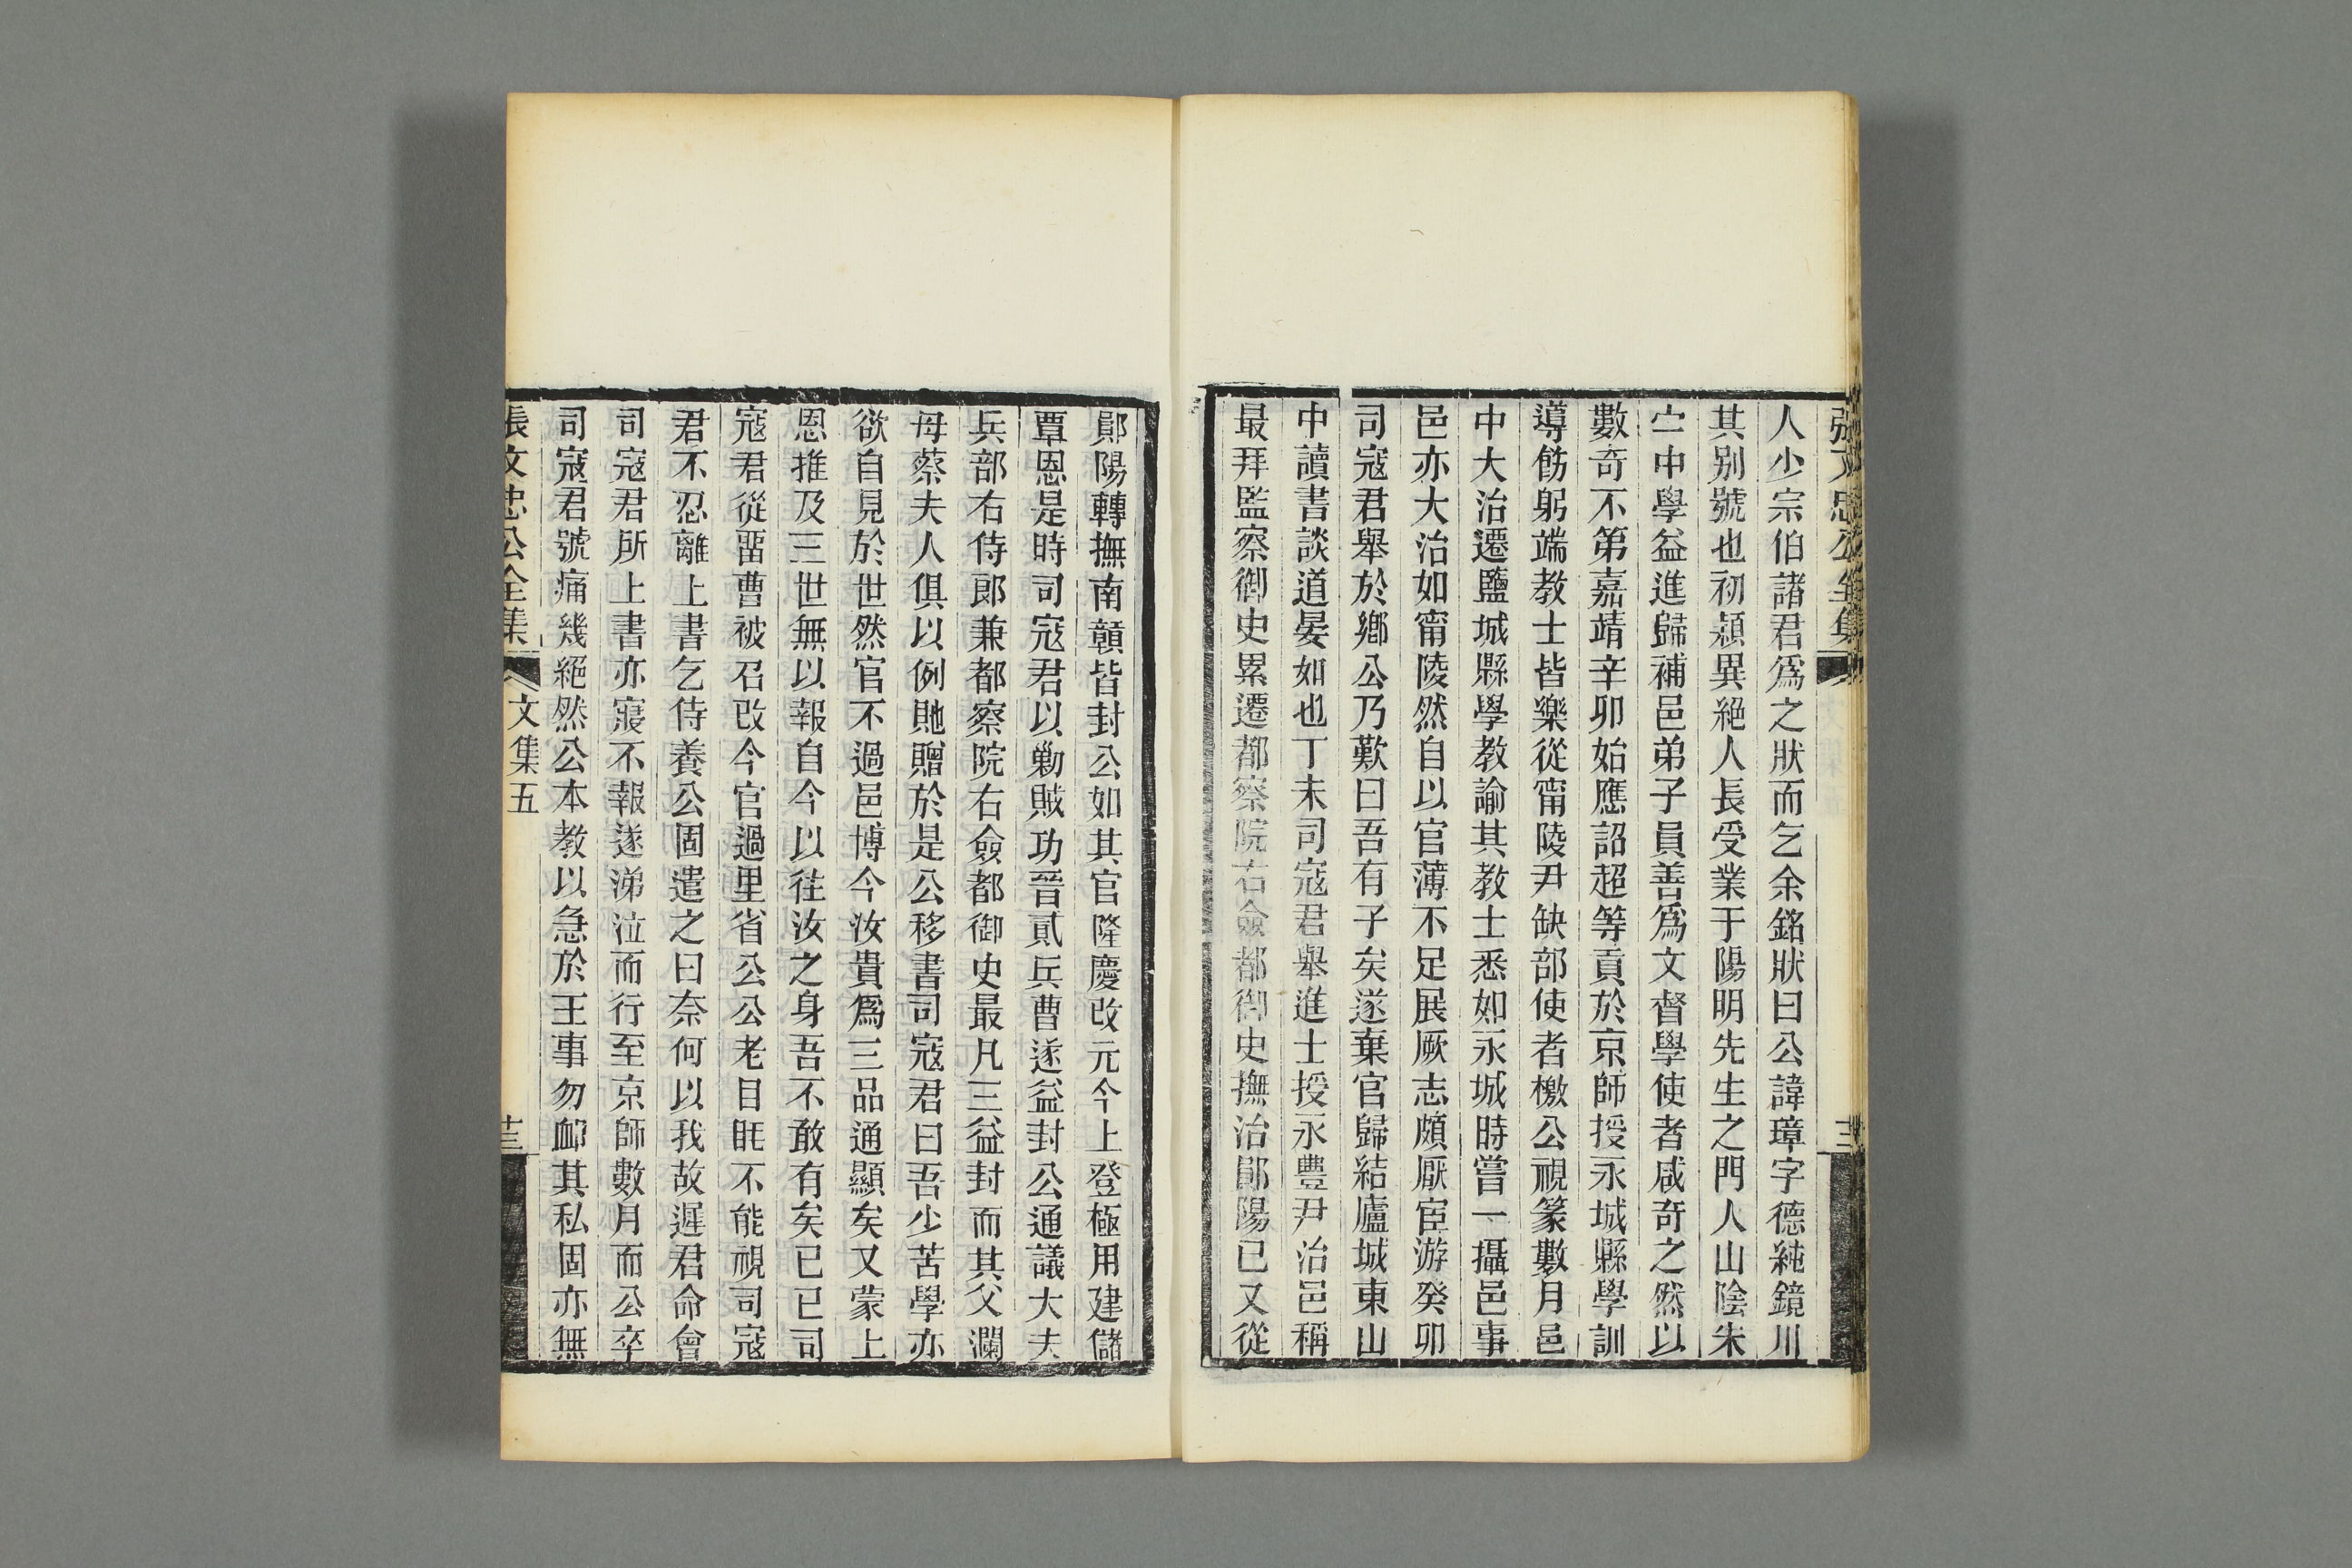 張文忠公全集
人少宗伯諸君爲之狀而乞余銘狀曰公諱璋字德純鏡川
其別號也初頴異絕人長受業于陽明先生之門人山陰朱
中學益進歸補邑弟子員善爲文督學使者咸奇之然以
數奇不第嘉靖辛卯始應詔超等貢於京師授永城縣學訓
導飭躬端教士皆樂從甯陵尹缺部使者檄公視篆數月邑
中大治遷鹽城縣學教諭其教士悉如永城時嘗一攝邑事
邑亦大治如甯陵然自以官薄不足展厥志頗厭宦游癸卯
司寇君舉於鄉公乃歎曰吾有子矣遂棄官歸結廬城東山
中讀書談道晏如也丁未司寇君舉進士授永豐尹治邑稱
最拜監察御史累遷都察院右僉都御史撫治鄖陽已又從
鄖陽轉撫南贛皆封公如其官隆慶改元今上登極用建儲
覃恩是時司寇君以勦賊功晉貳兵曹遂益封公通議大夫
兵部右侍郎兼都察院右僉都御史最凡三益封而其父瀾
母蔡夫人俱以例貤贈於是公移書司寇君曰吾少苦學亦
欲自見於世然官不過邑博今汝貴爲三品通顯矣又蒙上
恩推及三世無以報自今以往汝之身吾不敢有矣已已司
寇君從畱曹被召改今官過里省公公老目眊不能視司寇
君不忍離上書乞侍養公固遣之曰奈何以我故遲君命會
司寇君所上書亦寢不報遂涕泣而行至京師數月而公卒
司寇君號痛幾絕然公本教以急於王事勿卹其私固亦無
張文忠公全集 文集五 十三